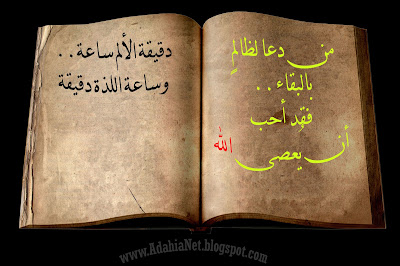 من دعا لظالمٍ
بالبقاء..
فقد أحب
أن يُعصى الله
دقيقة الألم ساعة..
وساعة اللذة دقيقة
www.AdahiaNet.blogspot.com